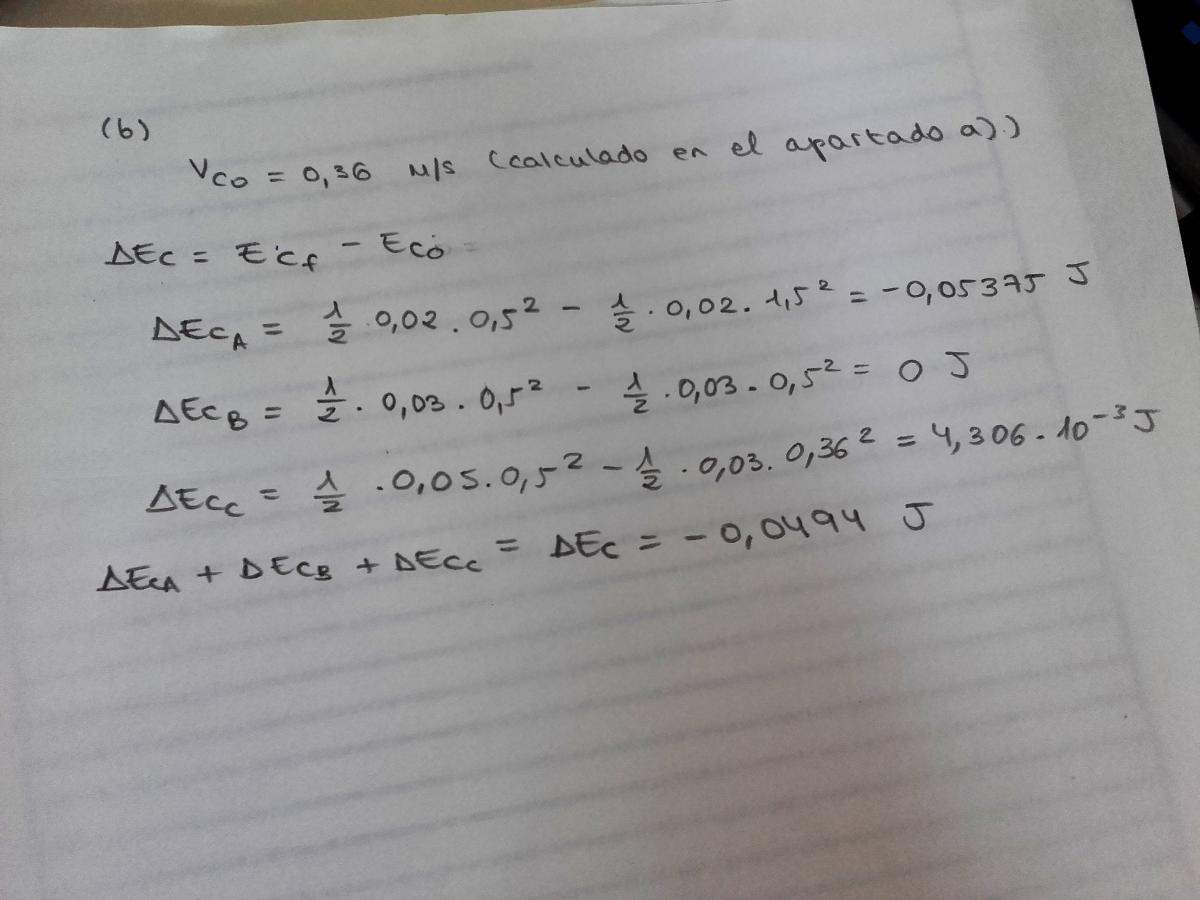 (b)
Vco = 0,36 m/s (calculado en el apartado a).)
ΔEc = Ecf - Eco =
ΔEcA = 1/2 · 0,02 · 0,5² - 1/2 · 0,02 · 1,5² = -0,05375 J
ΔEcB = 1/2 · 0,03 · 0,5² - 1/2 · 0,03 · 0,5² = 0 J
ΔEcc = 1/2 · 0,05 · 0,5² - 1/2 · 0,03 · 0,36² = 4,306 · 10⁻³ J
ΔEcA + ΔEcB + ΔEcc = ΔEc = -0,0494 J